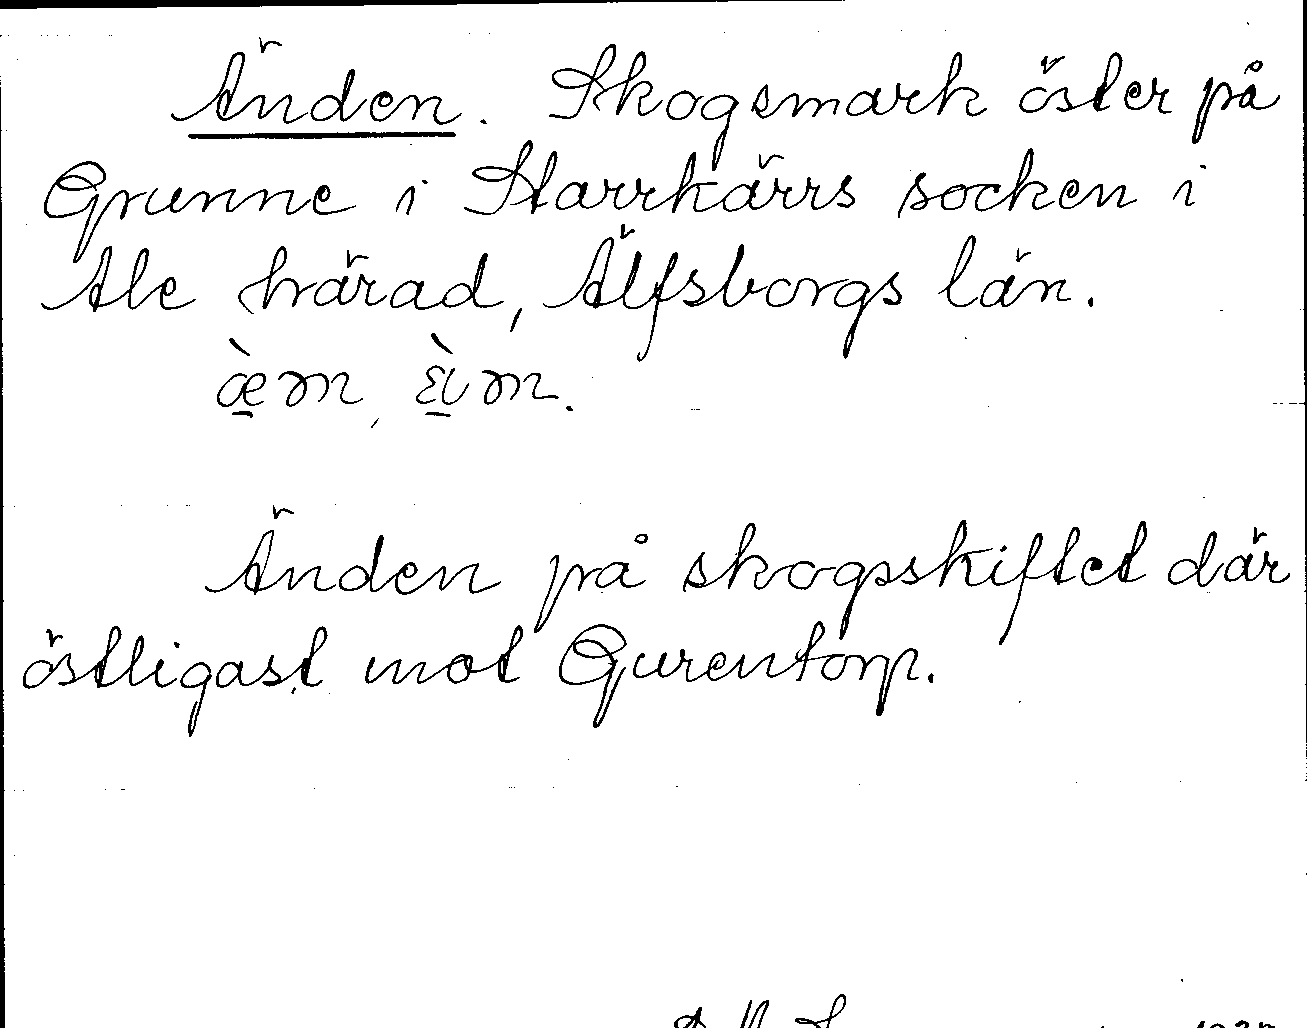 Änden. Skogsmark öster på
Grunne i Starrkärrs socken i
Ale härad, Älfsborgs län.
æ̠̀n, ὲ̠n.
Änden på skogsskiftet där
östligast mot Gurentorp.